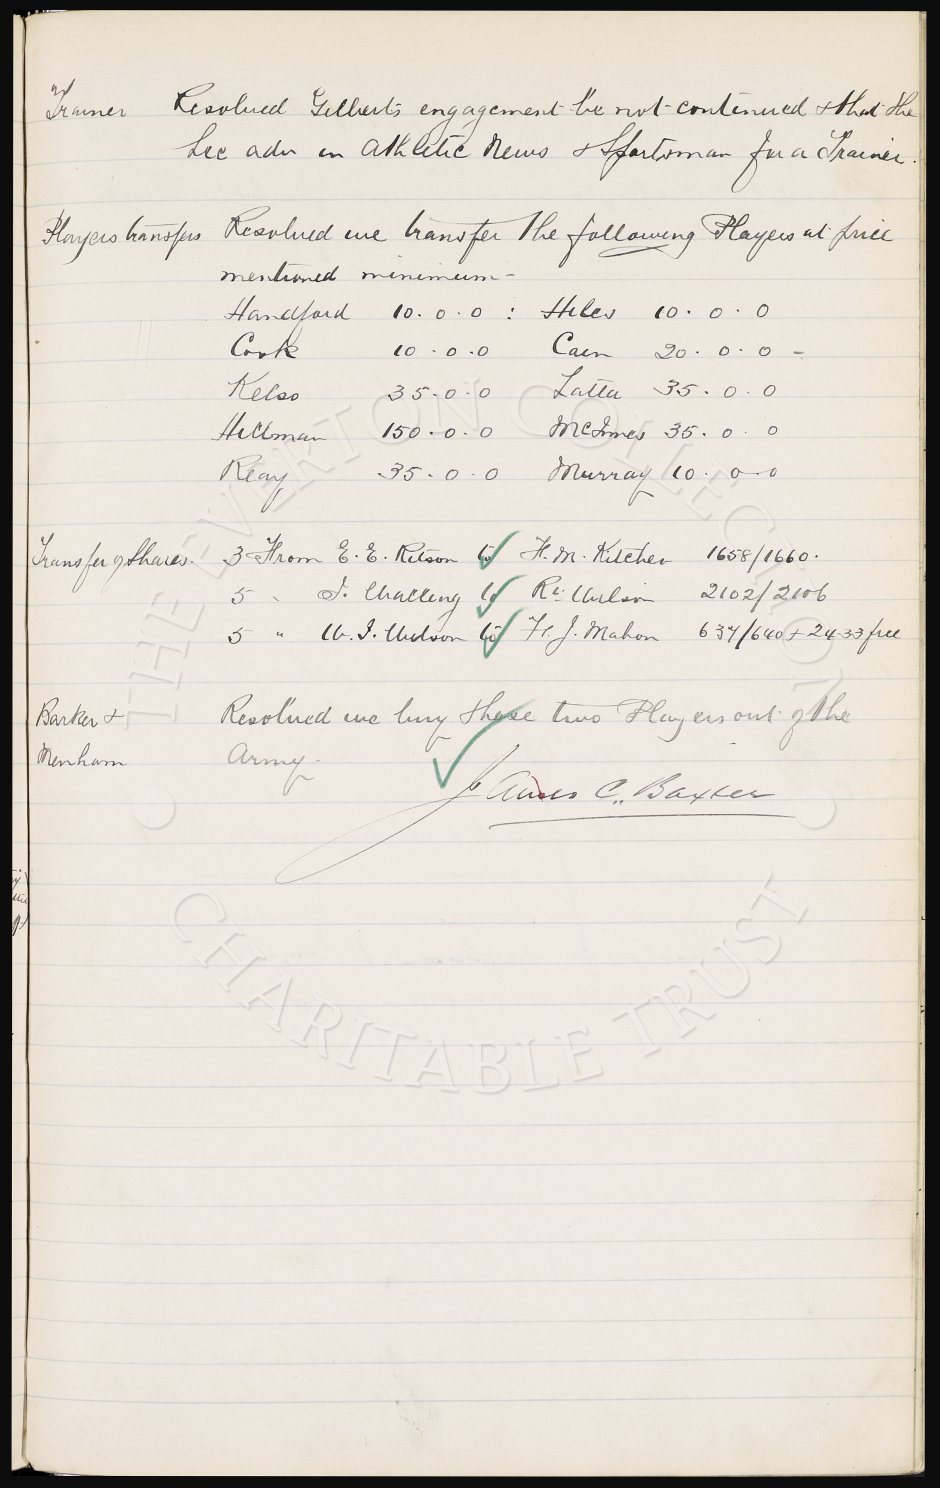 Trainer Resolved Gilberts engagement be not continued & that the
Sec adv in Athletic News & Sportsman for a Trainer.
Players transfers Resolved we transfer the following Players at price
mentioned minimum -
Handford 10. 0. 0 : Hiles 10. 0. 0
Cook 10. 0. 0 Cain 20. 0. 0 -
Kelso 35. 0. 0 Latta 35. 0. 0
Hillman 150. 0. 0 McInnes 35. 0. 0
Reay 35. 0. 0 Murray 10. 0. 0
Transfer of Shares. 3 From E. E. Ritson to H. M. Kitchen 1658/1660.
5 " J. Whalley to Rt. Wilson 2102/2106
5 " W. J. Wilson to H. J. Mahon 637/640 + 2433 free
Barker & Resolved we buy these two Players out of the
Menham Army.
James C. Baxter
THE EVERTON COLLECTION
CHARITABLE TRUST